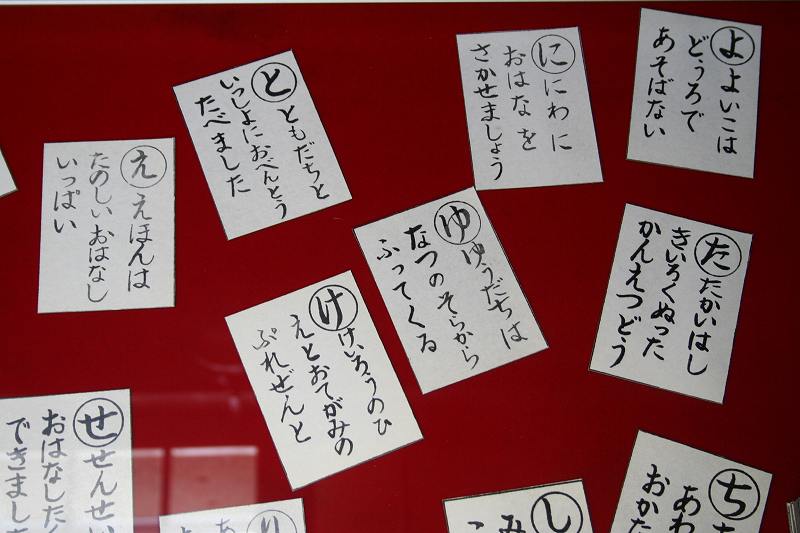 よ
よいこは
どうろで
あそばない
に
にわに
おはなを
さかせましょう
と
ともだちと
いっしょにおべんとう
たべました
え
えほんは
たのしいおはなし
いっぱい
た
たかいはし
きいろくぬった
かんえつどう
ゆ
ゆうだちは
なつのそらから
ふってくる
け
けいろうのひ
えとおてがみの
ぷれぜんと
せ
せんせい
おはなしたく
できまし
ち
あわ
おかた
し
み
り